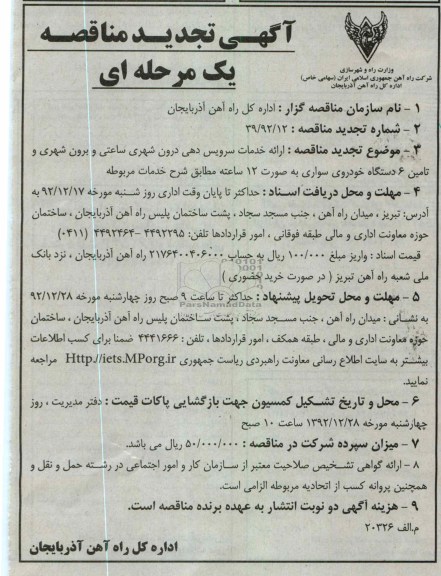 آگهی تجدید مناقصه
یک مرحله ای
وزارت راه و شهرسازی
شرکت راه آهن جمهوری اسلامی ایران (سهامی خاص)
اداره کل راه آهن آذربایجان
۱ - نام سازمان مناقصه گزار : اداره کل راه آهن آذربایجان
۲ - شماره تجدید مناقصه : ۳۹/۹۲/۱۲
۳ - موضوع تجدید مناقصه : ارائه خدمات سرویس دهی درون شهری ساعتی و برون شهری و
تامین ۶ دستگاه خودروی سواری به صورت ۱۲ ساعته مطابق شرح خدمات مربوطه
۴ - مهلت و محل دریافت اسناد : حداکثر تا پایان وقت اداری روز شنبه مورخه ۹۲/۱۲/۱۷ به
آدرس: تبریز ، میدان راه آهن ، جنب مسجد سجاد ، پشت ساختمان پلیس راه آهن آذربایجان ، ساختمان
حوزه معاونت اداری و مالی طبقه فوقانی ، امور قراردادها تلفن: ۴۴۹۲۲۹۵ -۴۴۹۲۴۶۴ (۰۴۱۱)
قیمت اسناد : واریز مبلغ ۱۰۰/۰۰۰ ریال به حساب ۲۱۷۶۴۰۰۴۰۶۰۰۰ راه آهن آذربایجان ، نزد بانک
ملی شعبه راه آهن تبریز ( در صورت خرید حضوری )
۵ - مهلت و محل تحویل پیشنهاد : حداکثر تا ساعت ۹ صبح روز چهارشنبه مورخه ۹۲/۱۲/۲۸
به نشانی : میدان راه آهن ، جنب مسجد سجاد ، پشت ساختمان پلیس راه آهن آذربایجان ، ساختمان
حوزه معاونت اداری و مالی ، طبقه همکف ، امور قراردادها ، تلفن : ۴۴۴۱۶۶۶ ضمنا برای کسب اطلاعات
بیشتر به سایت اطلاع رسانی معاونت راهبردی ریاست جمهوری Http://iets.MPorg.ir مراجعه
نمایید.
۶ - محل و تاریخ تشکیل کمسیون جهت بازگشایی پاکات قیمت : دفتر مدیریت ، روز
چهارشنبه مورخه ۱۳۹۲/۱۲/۲۸ ساعت ۱۰ صبح
۷ - میزان سپرده شرکت در مناقصه : ۵۰/۰۰۰/۰۰۰ ریال می باشد.
۸ - ارائه گواهی تشخیص صلاحیت معتبر از سازمان کار و امور اجتماعی در رشته حمل و نقل و
همچنین پروانه کسب از اتحادیه مربوطه الزامی است.
۹ - هزینه آگهی دو نوبت انتشار به عهده برنده مناقصه است.
م.الف ۲۰۳۲۶
اداره کل راه آهن آذربایجان